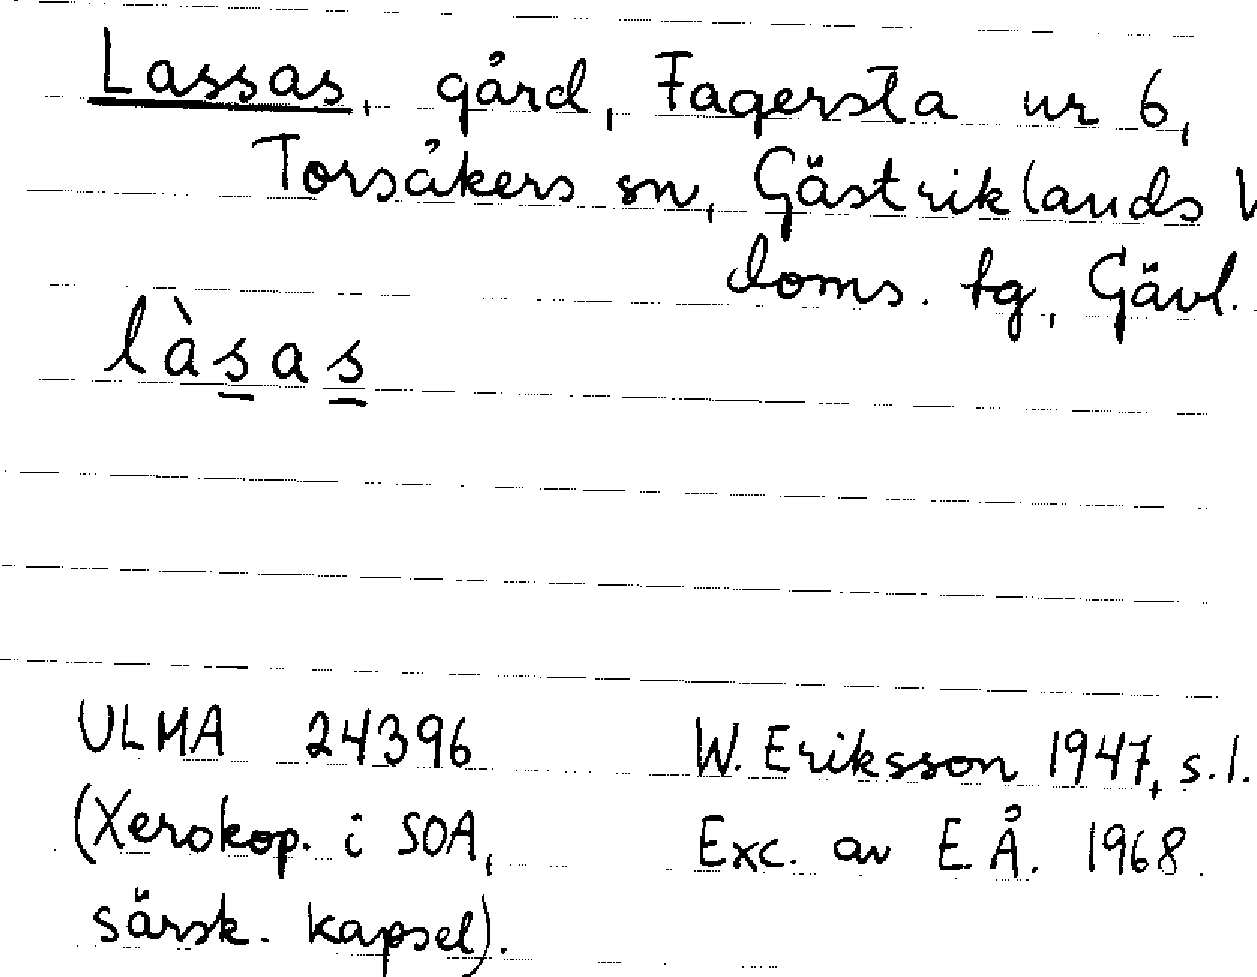 Lassas, gård, Fagersta nr 6,
Torsåkers sn, Gästriklands V
doms. tg, Gävl.
làs̲as̲
ULMA 24396 W. Eriksson 1947, s.1.
(Xerokop. i SOA, Exc. av E.Å. 1968.
särsk. kapsel).